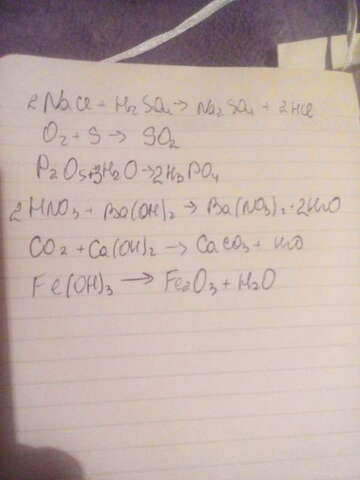 2NaCl + H2SO4 → Na2SO4 + 2HCl
O2 + S → SO2
P2O5+3H2O→2H3PO4
2HNO3 + Ba(OH)2 → Ba(NO3)2+2H2O
CO2 + Ca(OH)2 → CaCO3 + H2O
Fe(OH)3 → Fe2O3 + H2O